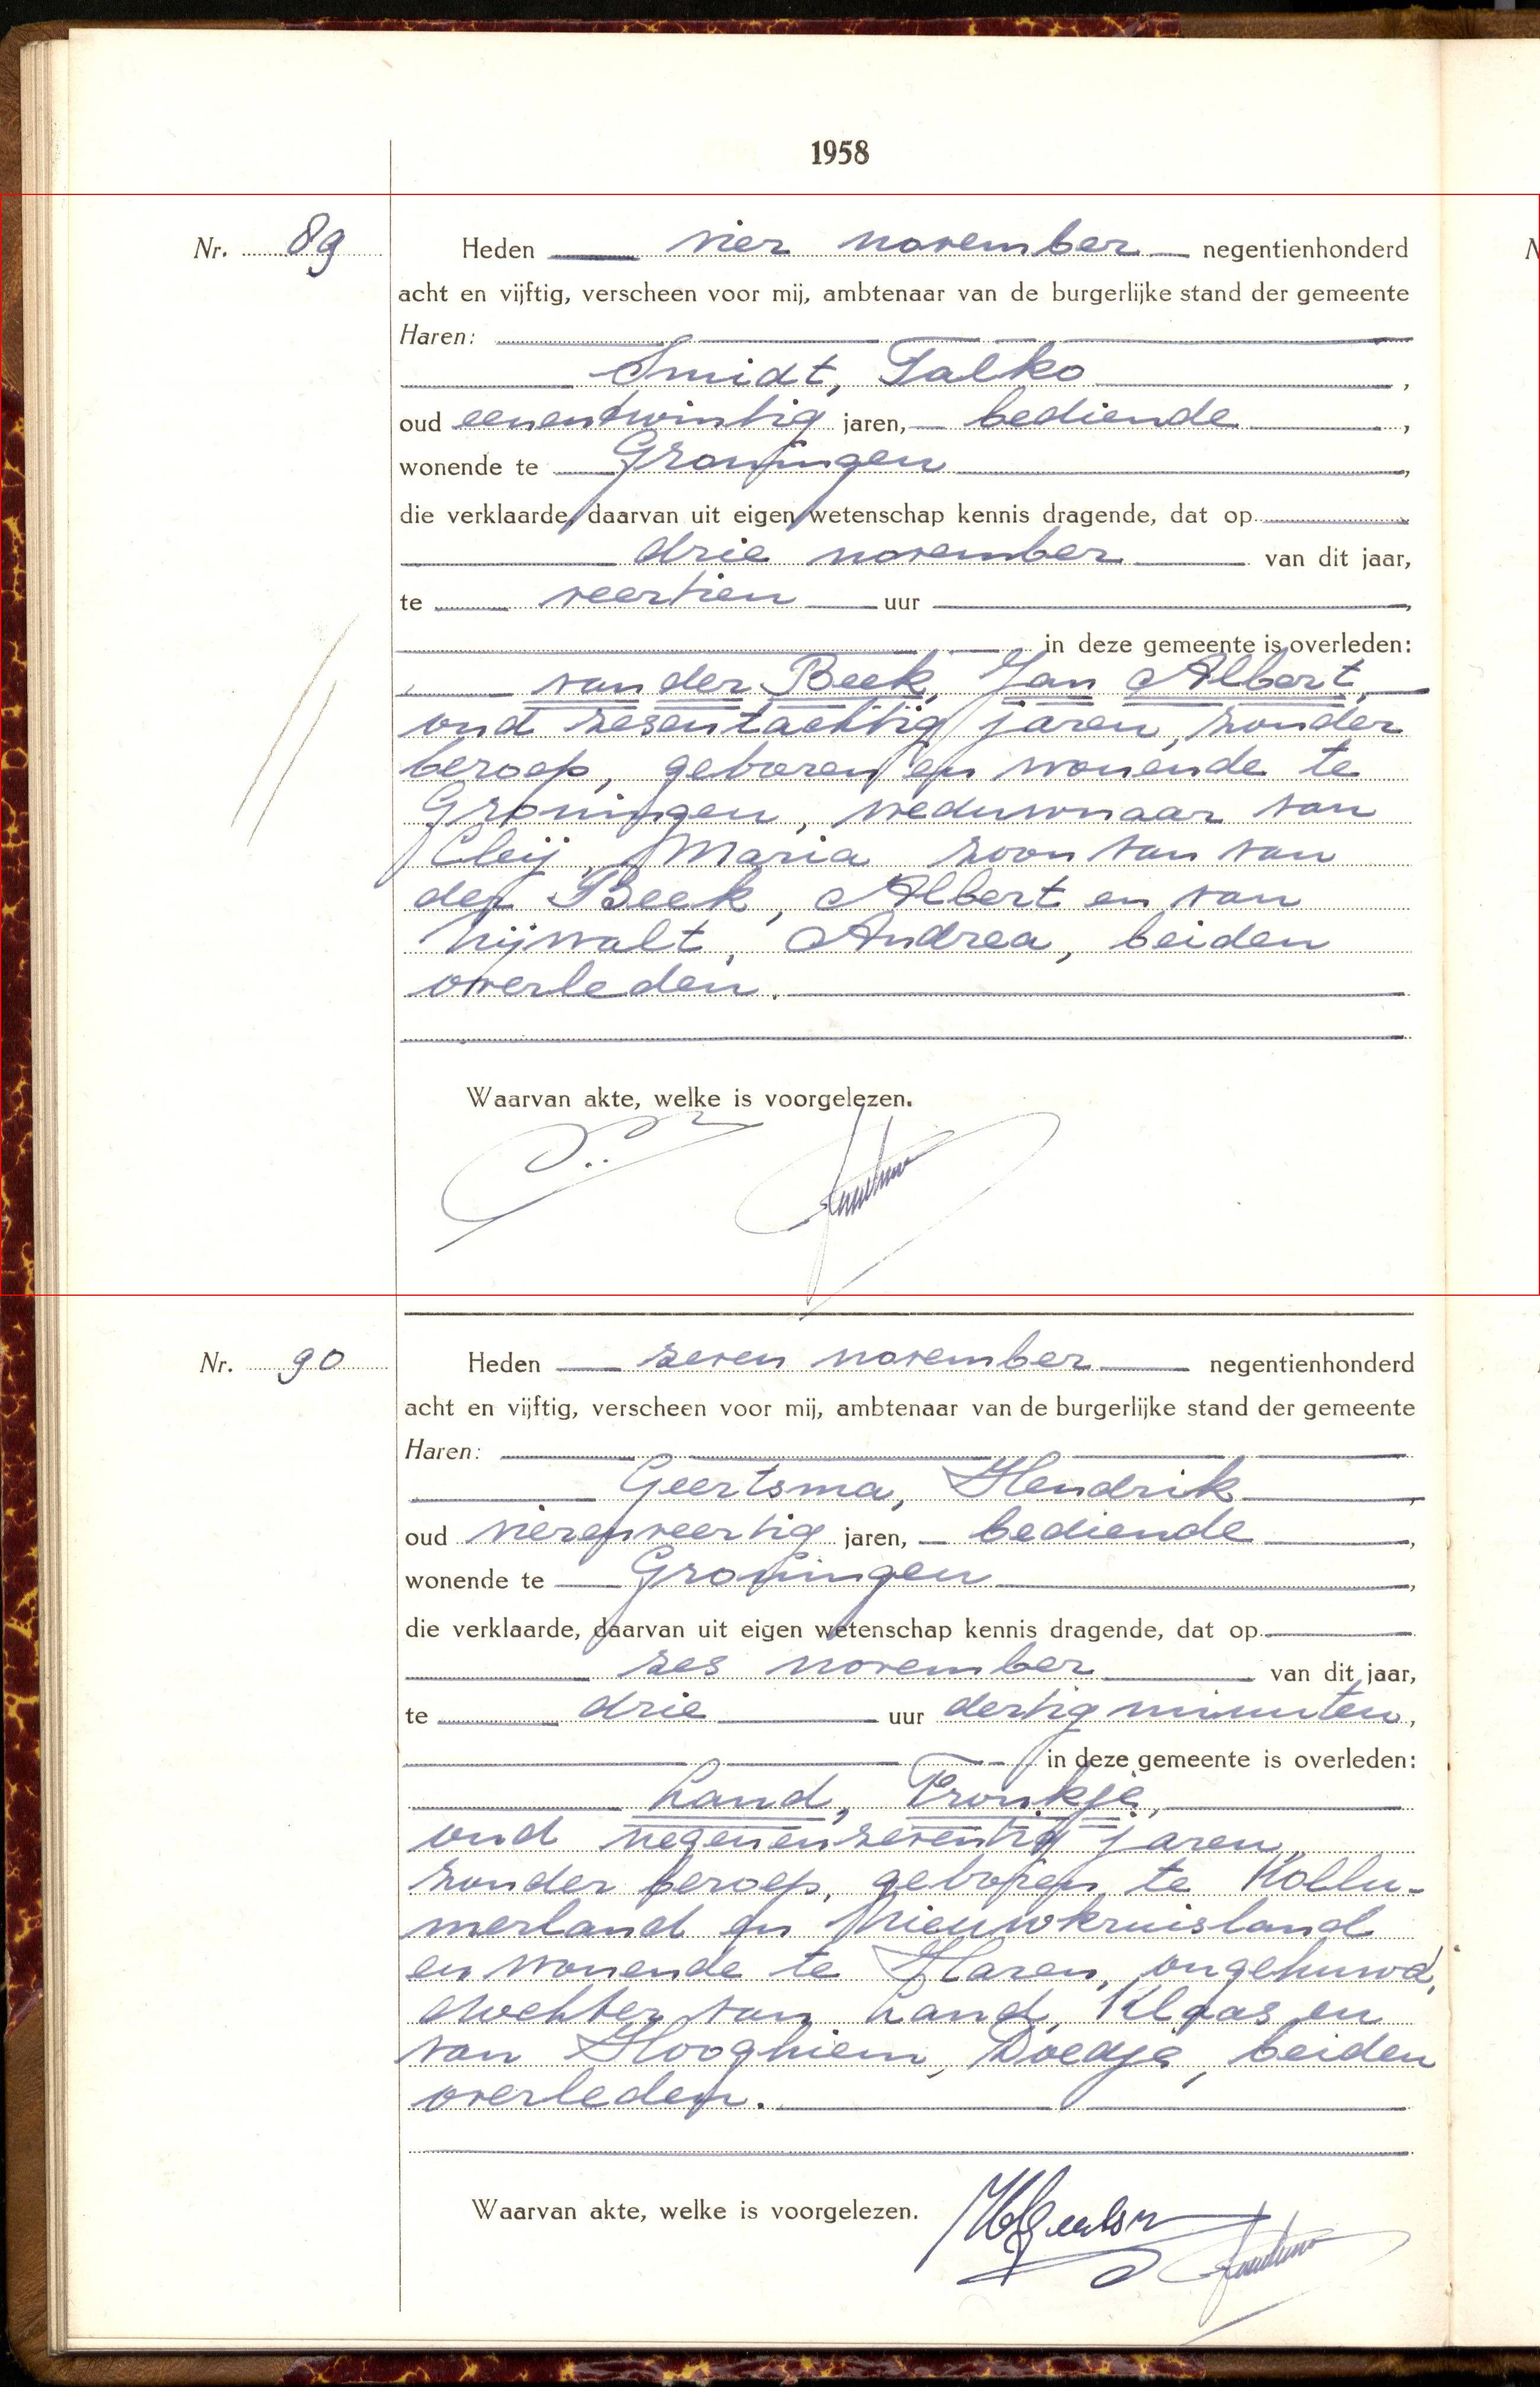 1958
Nr. 89
Heden vier november negentienhonderd
acht en vijftig, verscheen voor mij, ambtenaar van de burgerlijke stand der gemeente
Haren:
Smidt, Talko,
oud eenentwintig jaren, bediende,
wonende te Groningen,
die verklaarde, daarvan uit eigen wetenschap kennis dragende, dat op
drie november van dit jaar,
te veertien uur,
in deze gemeente is overleden:
van der Beek, Jan Albert,
oud zesentachtig jaren, zonder
beroep, geboren en wonende te
Groningen, weduwnaar van
Cleij, Maria zoon van van
der Beek, Albert en van
Nijwalt, Andrea, beiden
overleden.
Waarvan akte, welke is voorgelezen.
Nr. 90
Heden zeven november negentienhonderd
acht en vijftig, verscheen voor mij, ambtenaar van de burgerlijke stand der gemeente
Haren:
Geertsma, Hendrik,
oud vierenveertig jaren, bediende,
wonende te Groningen,
die verklaarde, daarvan uit eigen wetenschap kennis dragende, dat op
zes november van dit jaar,
te drie uur dertig minuten,
in deze gemeente is overleden:
Land, Pronkje,
oud negenenzeventig jaren,
zonder beroep, geboren te Kollu-
merland en Nieuwkruisland
en wonende te Haren, ongehuwd,
dochter van Land, Klaas en
van Hooghiem, Doedje, beiden
overleden.
Waarvan akte, welke is voorgelezen.